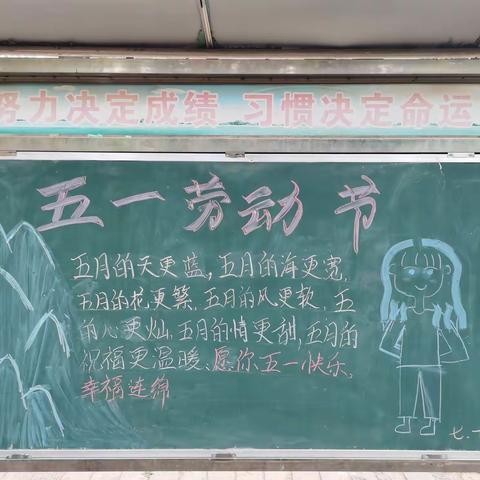 努力决定成绩 习惯决定命运
五一劳动节
五月的天更蓝,五月的海更宽,
五月的花更繁,五月的风更软,五
的心更灿,五月的情更甜,五月的
祝福更温暖、愿你五一快乐、
幸福连绵
七.一